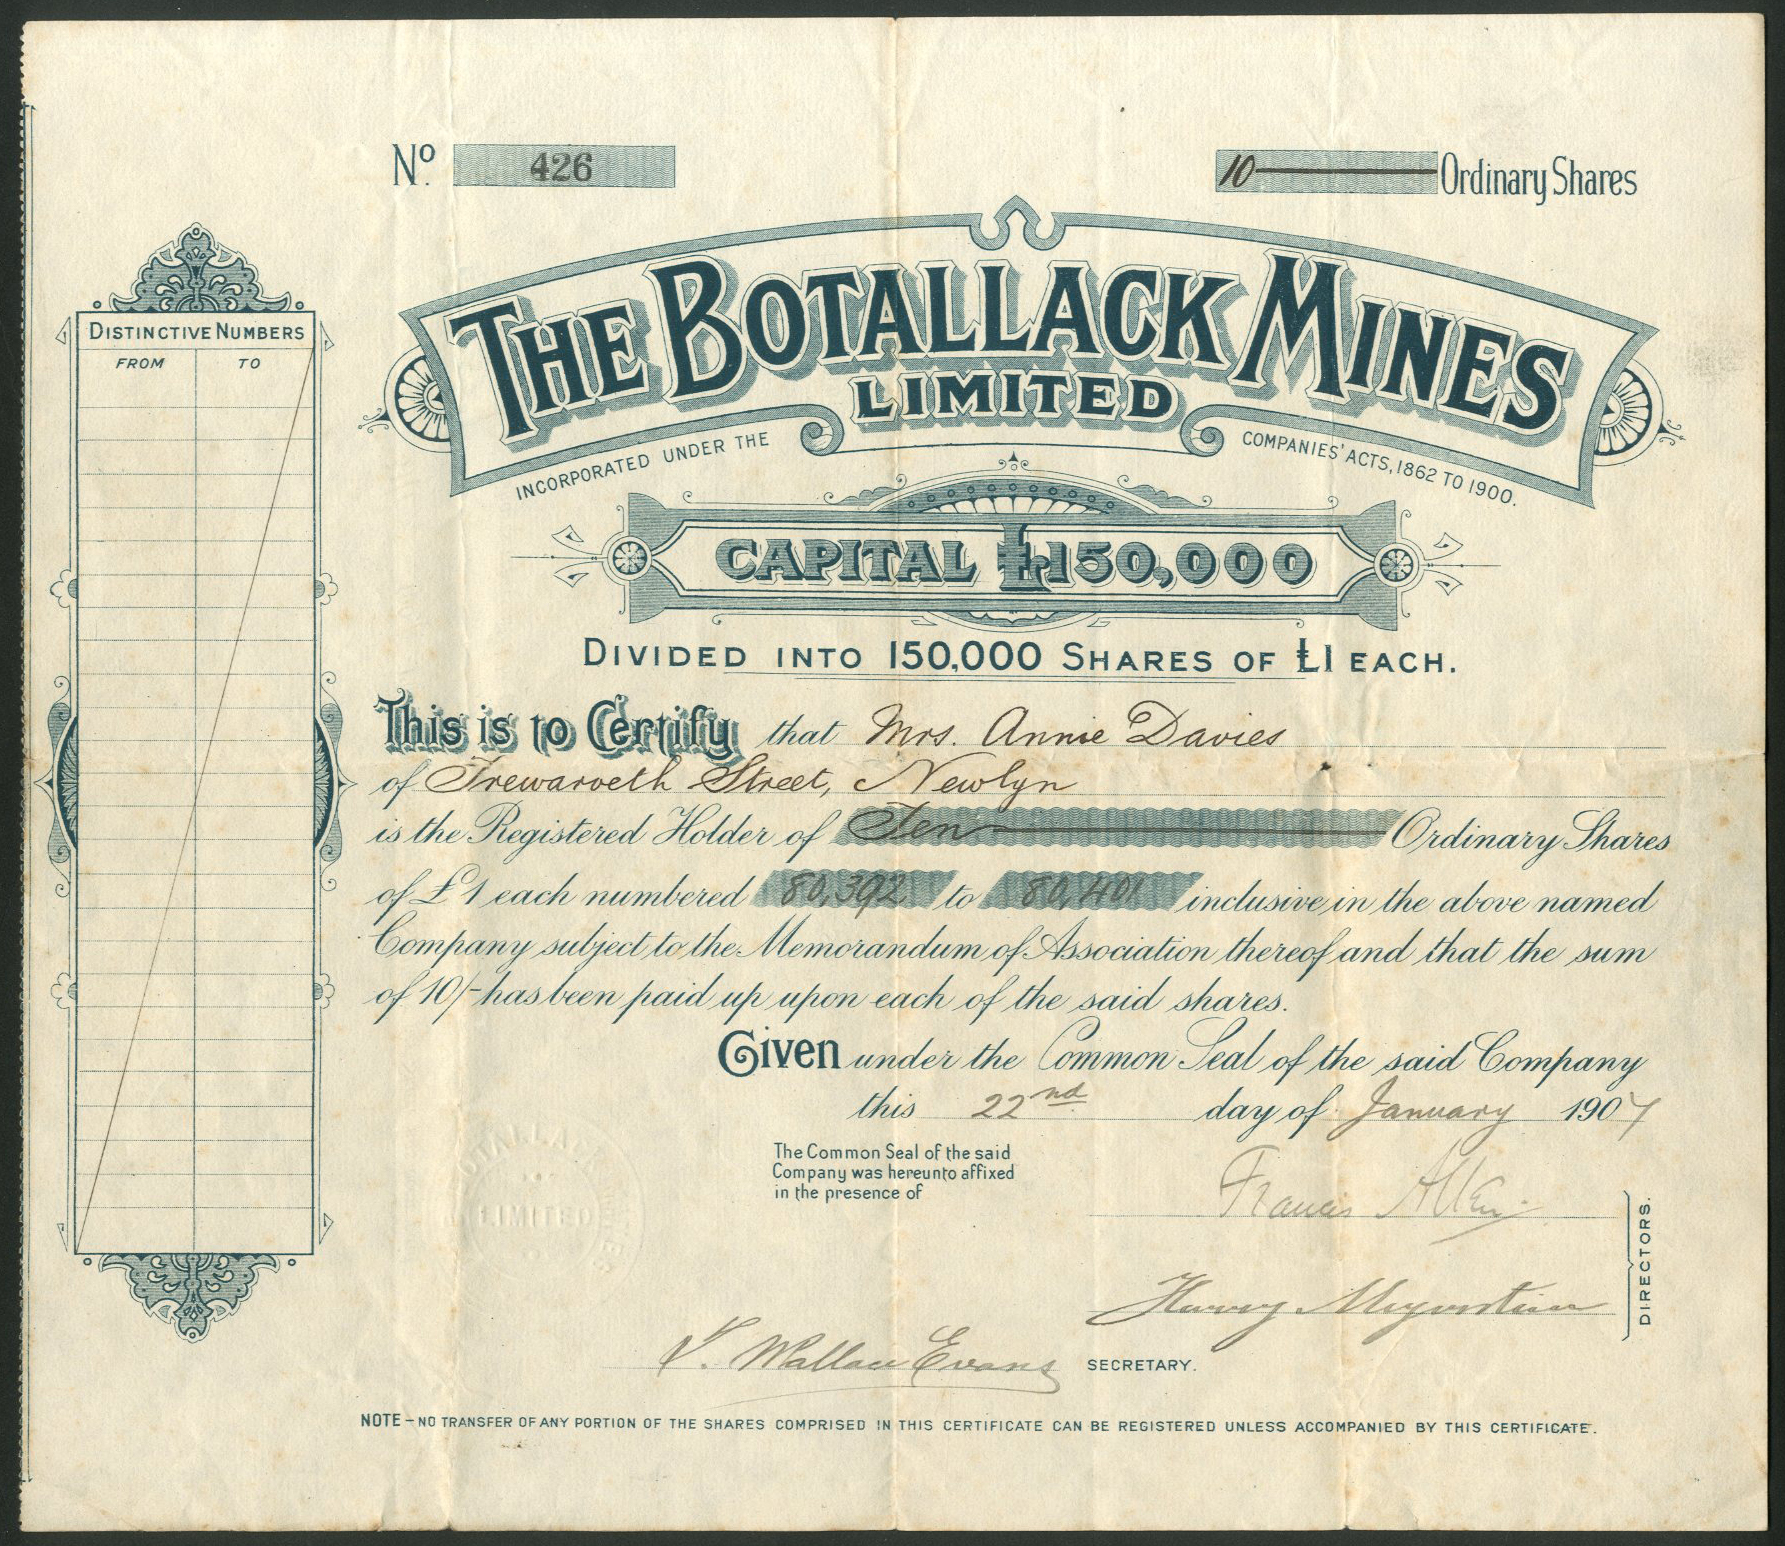 No. 426
10 Ordinary Shares
THE BOTALLACK MINES
LIMITED
INCORPORATED UNDER THE COMPANIES' ACTS, 1862 TO 1900.
CAPITAL £150,000
DIVIDED INTO 150,000 SHARES OF £1 EACH.
DISTINCTIVE NUMBERS
FROM TO
This is to Certify that Mrs. Annie Davies
of Trewarveth Street, Newlyn
is the Registered Holder of Ten Ordinary Shares
of £1 each numbered 80,392 to 80,401 inclusive in the above named
Company subject to the Memorandum of Association thereof and that the sum
of 10/- has been paid up upon each of the said shares.
Given under the Common Seal of the said Company
this 22nd day of January 1907
The Common Seal of the said
Company was hereunto affixed
in the presence of
Francis
DIRECTORS.
LIMITED
Wallace Evans SECRETARY.
NOTE - NO TRANSFER OF ANY PORTION OF THE SHARES COMPRISED IN THIS CERTIFICATE CAN BE REGISTERED UNLESS ACCOMPANIED BY THIS CERTIFICATE.